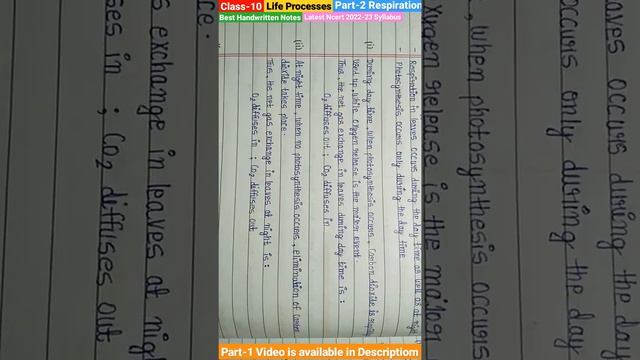 Class-10 Life Processes Part-2 Respiration
Best Handwritten Notes Latest Ncert 2022-23 Syllabus
- Respiration in leaves occurs during the day time as well as at night
- Photosynthesis occurs only during the day time
(i) During day time, when photosynthesis occurs, Carbon dioxide is
used up, while oxygen release is the major event.
Thus, the net gas exchange in leaves during day time is :
O2 diffuses out ; CO2 diffuses in
(ii) At night time, when no photosynthesis occurs, elimination of carbon
dioxide takes place.
Thus, the net gas exchange in leaves at night is :
O2 diffuses in ; CO2 diffuses out
Part-1 Video is available in Descriptiom
occurs during the day
occurs only during the day
, when photosynthesis occurs
release is the major
exchange in leaves at
in ; CO2 diffuses out